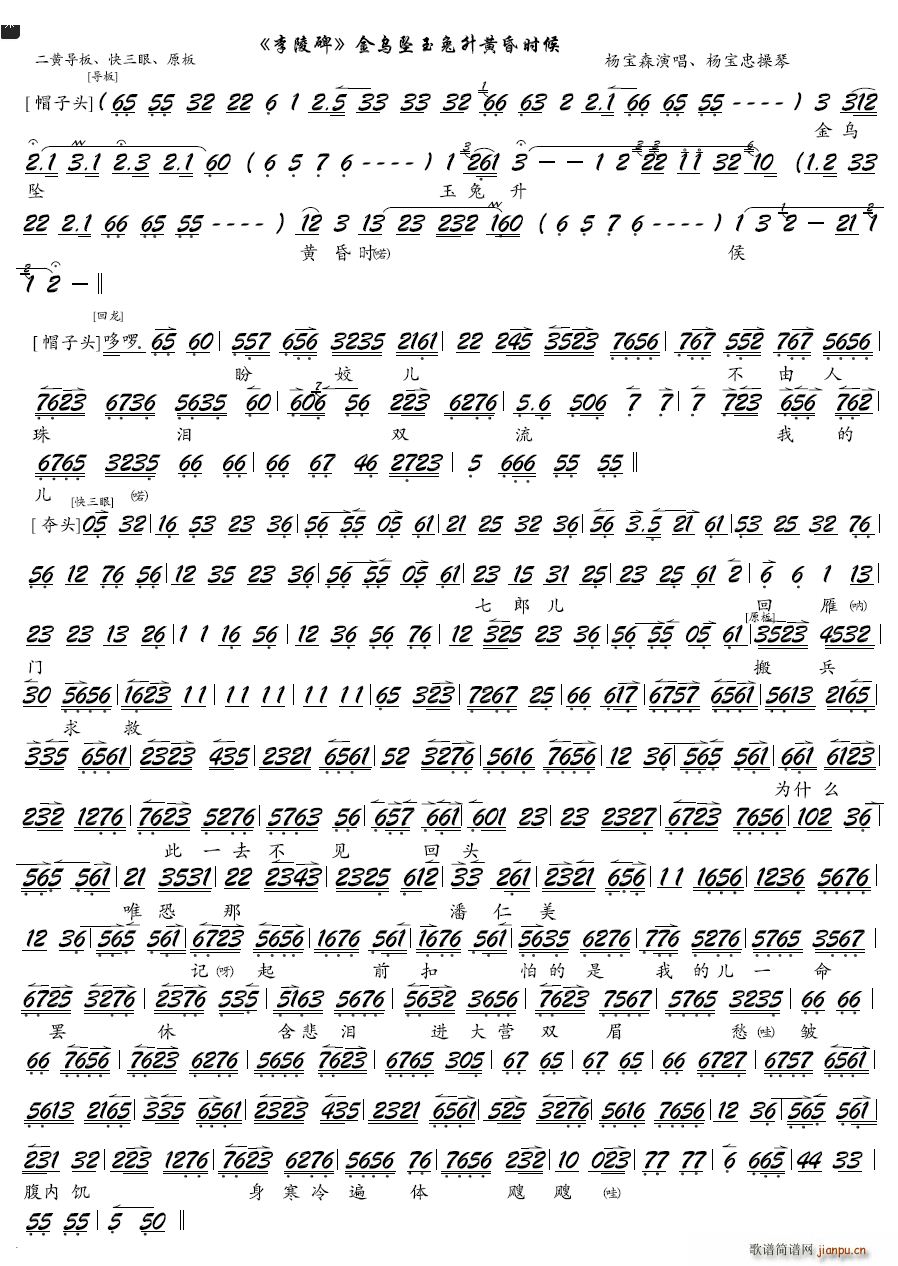 《李陵碑》金乌坠玉兔升黄昏时候
二黄导板、快三眼、原板 杨宝森演唱、杨宝忠操琴
[导板]
[帽子头] ( 65 55 32 22 6 1 2.5 33 33 32 66 63 2 2.1 66 65 55 - - - - ) 3 312
金 乌
2.1 3.1 2.3 2.1 60 ( 6 5 7 6 - - - - ) 1 261 3 - - 1 2 22 11 32 10 (1.2 33
坠 玉 兔 升
22 2.1 66 65 55 - - - - ) 12 3 13 23 232 160 ( 6 5 7 6 - - - - ) 1 3 2 - 21 1
黄 昏 时 (喏) 候
1 2 - ‖
[回龙]
[帽子头] 哆啰. 65 60 | 557 656 3235 2161 | 22 245 3523 7656 | 767 552 767 5656 |
盼 姣 儿 不 由 人
7623 6736 5635 60 | 606 56 223 6276 | 5.6 506 7 7 | 7 723 656 762 |
珠 泪 双 流 我 的
6765 3235 66 66 | 66 67 46 2723 | 5 666 55 55 ‖
儿 (喏)
[快三眼]
[夺头] 05 32 | 16 53 23 36 | 56 55 05 61 | 21 25 32 36 | 56 3.5 21 61 | 53 25 32 76 |
56 12 76 56 | 12 35 23 36 | 56 55 05 61 | 23 15 31 25 | 23 25 61 2 | 6 6 1 13 |
七 郎 儿 回 雁 (呐)
[原板]
23 23 13 26 | 1 1 16 56 | 12 36 56 76 | 12 325 23 36 | 56 55 05 61 | 3523 4532 |
门 搬 兵
30 5656 | 1623 11 | 11 11 | 11 11 | 65 323 | 7267 25 | 66 617 | 6757 6561 | 5613 2165 |
求 救
335 6561 | 2323 435 | 2321 6561 | 52 3276 | 5616 7656 | 12 36 | 565 561 | 661 6123 |
为 什 么
232 1276 | 7623 5276 | 5763 56 | 657 661 | 601 23 | 23 2327 | 6723 7656 | 102 36 |
此 一 去 不 见 回 头
565 561 | 21 3531 | 22 2343 | 2325 612 | 33 261 | 2321 656 | 11 1656 | 1236 5676 |
唯 恐 那 潘 仁 美
12 36 | 565 561 | 6723 5656 | 1676 561 | 1676 561 | 5635 6276 | 776 5276 | 5765 3567 |
记 (呀) 起 前 扣 怕 的 是 我 的 儿 一 命
6725 3276 | 2376 535 | 5163 5676 | 5632 3656 | 7623 7567 | 5765 3235 | 66 66 |
罢 休 含 悲 泪 进 大 营 双 眉 愁 (哇) 皱
66 7656 | 7623 6276 | 5656 7623 | 6765 305 | 67 65 | 67 65 | 66 6727 | 6757 6561 |
5613 2165 | 335 6561 | 2323 435 | 2321 6561 | 525 3276 | 5616 7656 | 12 36 | 565 561 |
231 32 | 223 1276 | 7623 6276 | 5656 76 | 7656 232 | 10 023 | 77 77 | 6 665 | 44 33 |
腹 内 饥 身 寒 冷 遍 体 飕 飕 (哇)
55 55 | 5 50 ‖
歌谱简谱网 jianpu.cn